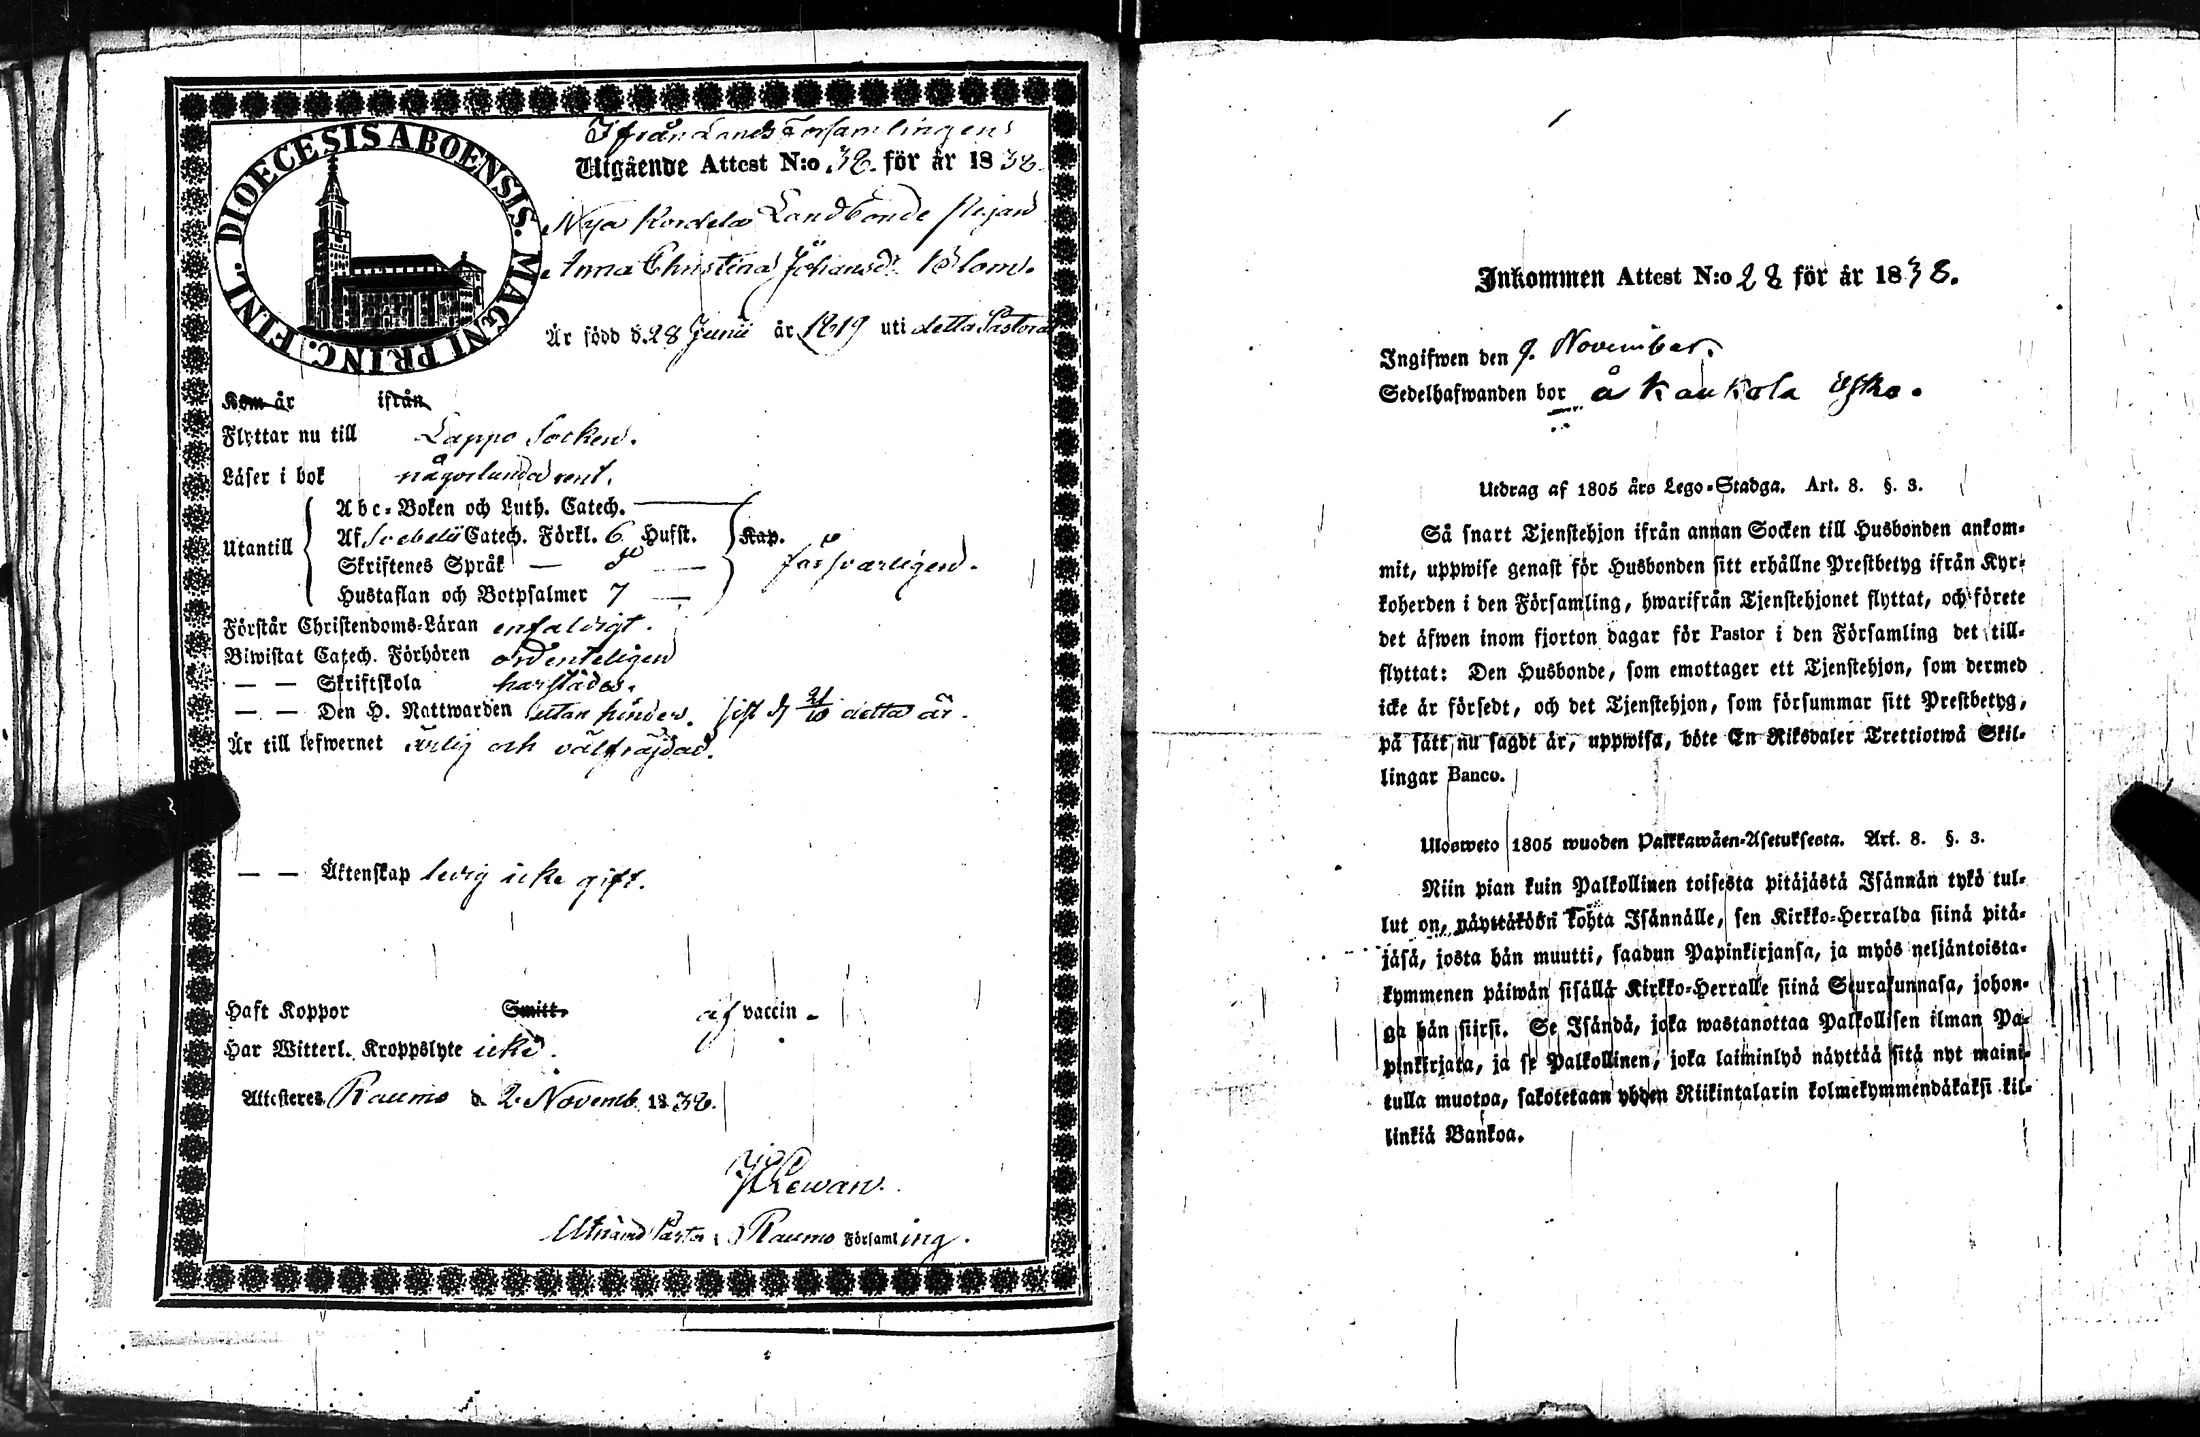 DIOECESIS ABOENSIS. MAGNI PRINC. FINL.
Ifrån Lands Församlingen
Utgående Attest N:o 38. för år 1838.
Nya Kordela Landbonde pigan
Anna Christina Johansdr Blom.
Är född d. 28 Junii år 1819 uti detta Pastorat
Kom år ifrån
Flyttar nu till Lappo Socken.
Läser i bok någorlunda rent.
Utantill
Abc-Boken och Luth. Catech. —
Af Svebelii Catech. Förkl. 6 Hufst.
Kap.
Skriftenes Språk — —
försvarligen.
Hustaflan och Botpsalmer 7 —
Förstår Christendoms-Läran enfaldigt.
Biwistat Catech. Förhören ordenteligen
— — Skriftskola härstädes.
— — Den H. Nattwarden utan hinder. sist d. 21/10 detta år.
Är till lefwernet ärlig och välfräjdad.
— — Äktenskap ledig icke gift.
Haft Koppor Smitt. af vaccin.
Har Witterl. Kroppslyte icke.
Attesteras Raumo d. 2 Novemb. 1838.
Lewan.
Pastor i Raumo Församling.
Inkommen Attest N:o 28 för år 1838.
Ingifwen den 9. November.
Sedelhafwanden bor å Kaukola
Utdrag af 1805 års Lego-Stadga. Art. 8. §. 3.
Så snart Tjenstehjon ifrån annan Socken till Husbonden ankom-
mit, uppwise genast för Husbonden sitt erhållne Prestbetyg ifrån Kyr-
koherden i den Församling, hwarifrån Tjenstehjonet flyttat, och förete
det äfwen inom fjorton dagar för Pastor i den Församling det till-
flyttat: Den Husbonde, som emottager ett Tjenstehjon, som dermed
icke är försedt, och det Tjenstehjon, som försummar sitt Prestbetyg,
på sätt nu sagdt är, uppwisa, böte En Riksdaler Trettiotwå Skil-
lingar Banco.
Ulosweto 1805 wuoden Palkkawäen-Asetuksesta. Art. 8. §. 3.
Niin pian kuin Palkollinen toisesta pitäjästä Isännän tykö tul-
lut on, näyttäköön kohta Isännälle, sen Kirkko-Herralda siinä pitä-
jäsä, josta hän muutti, saadun Papinkirjansa, ja myös neljäntoista-
kymmenen päiwän sisällä Kirkko-Herralle siinä Seurakunnasa, johon-
ga hän siirsi. Se Isändä, joka wastanottaa Palkollisen ilman Pa-
pinkirjata, ja se Palkollinen, joka laiminlyö näyttää sitä nyt maini-
tulla muotoa, sakotetaan yhden Riikintalarin kolmekymmendäkaksi kil-
linkiä Bankoa.